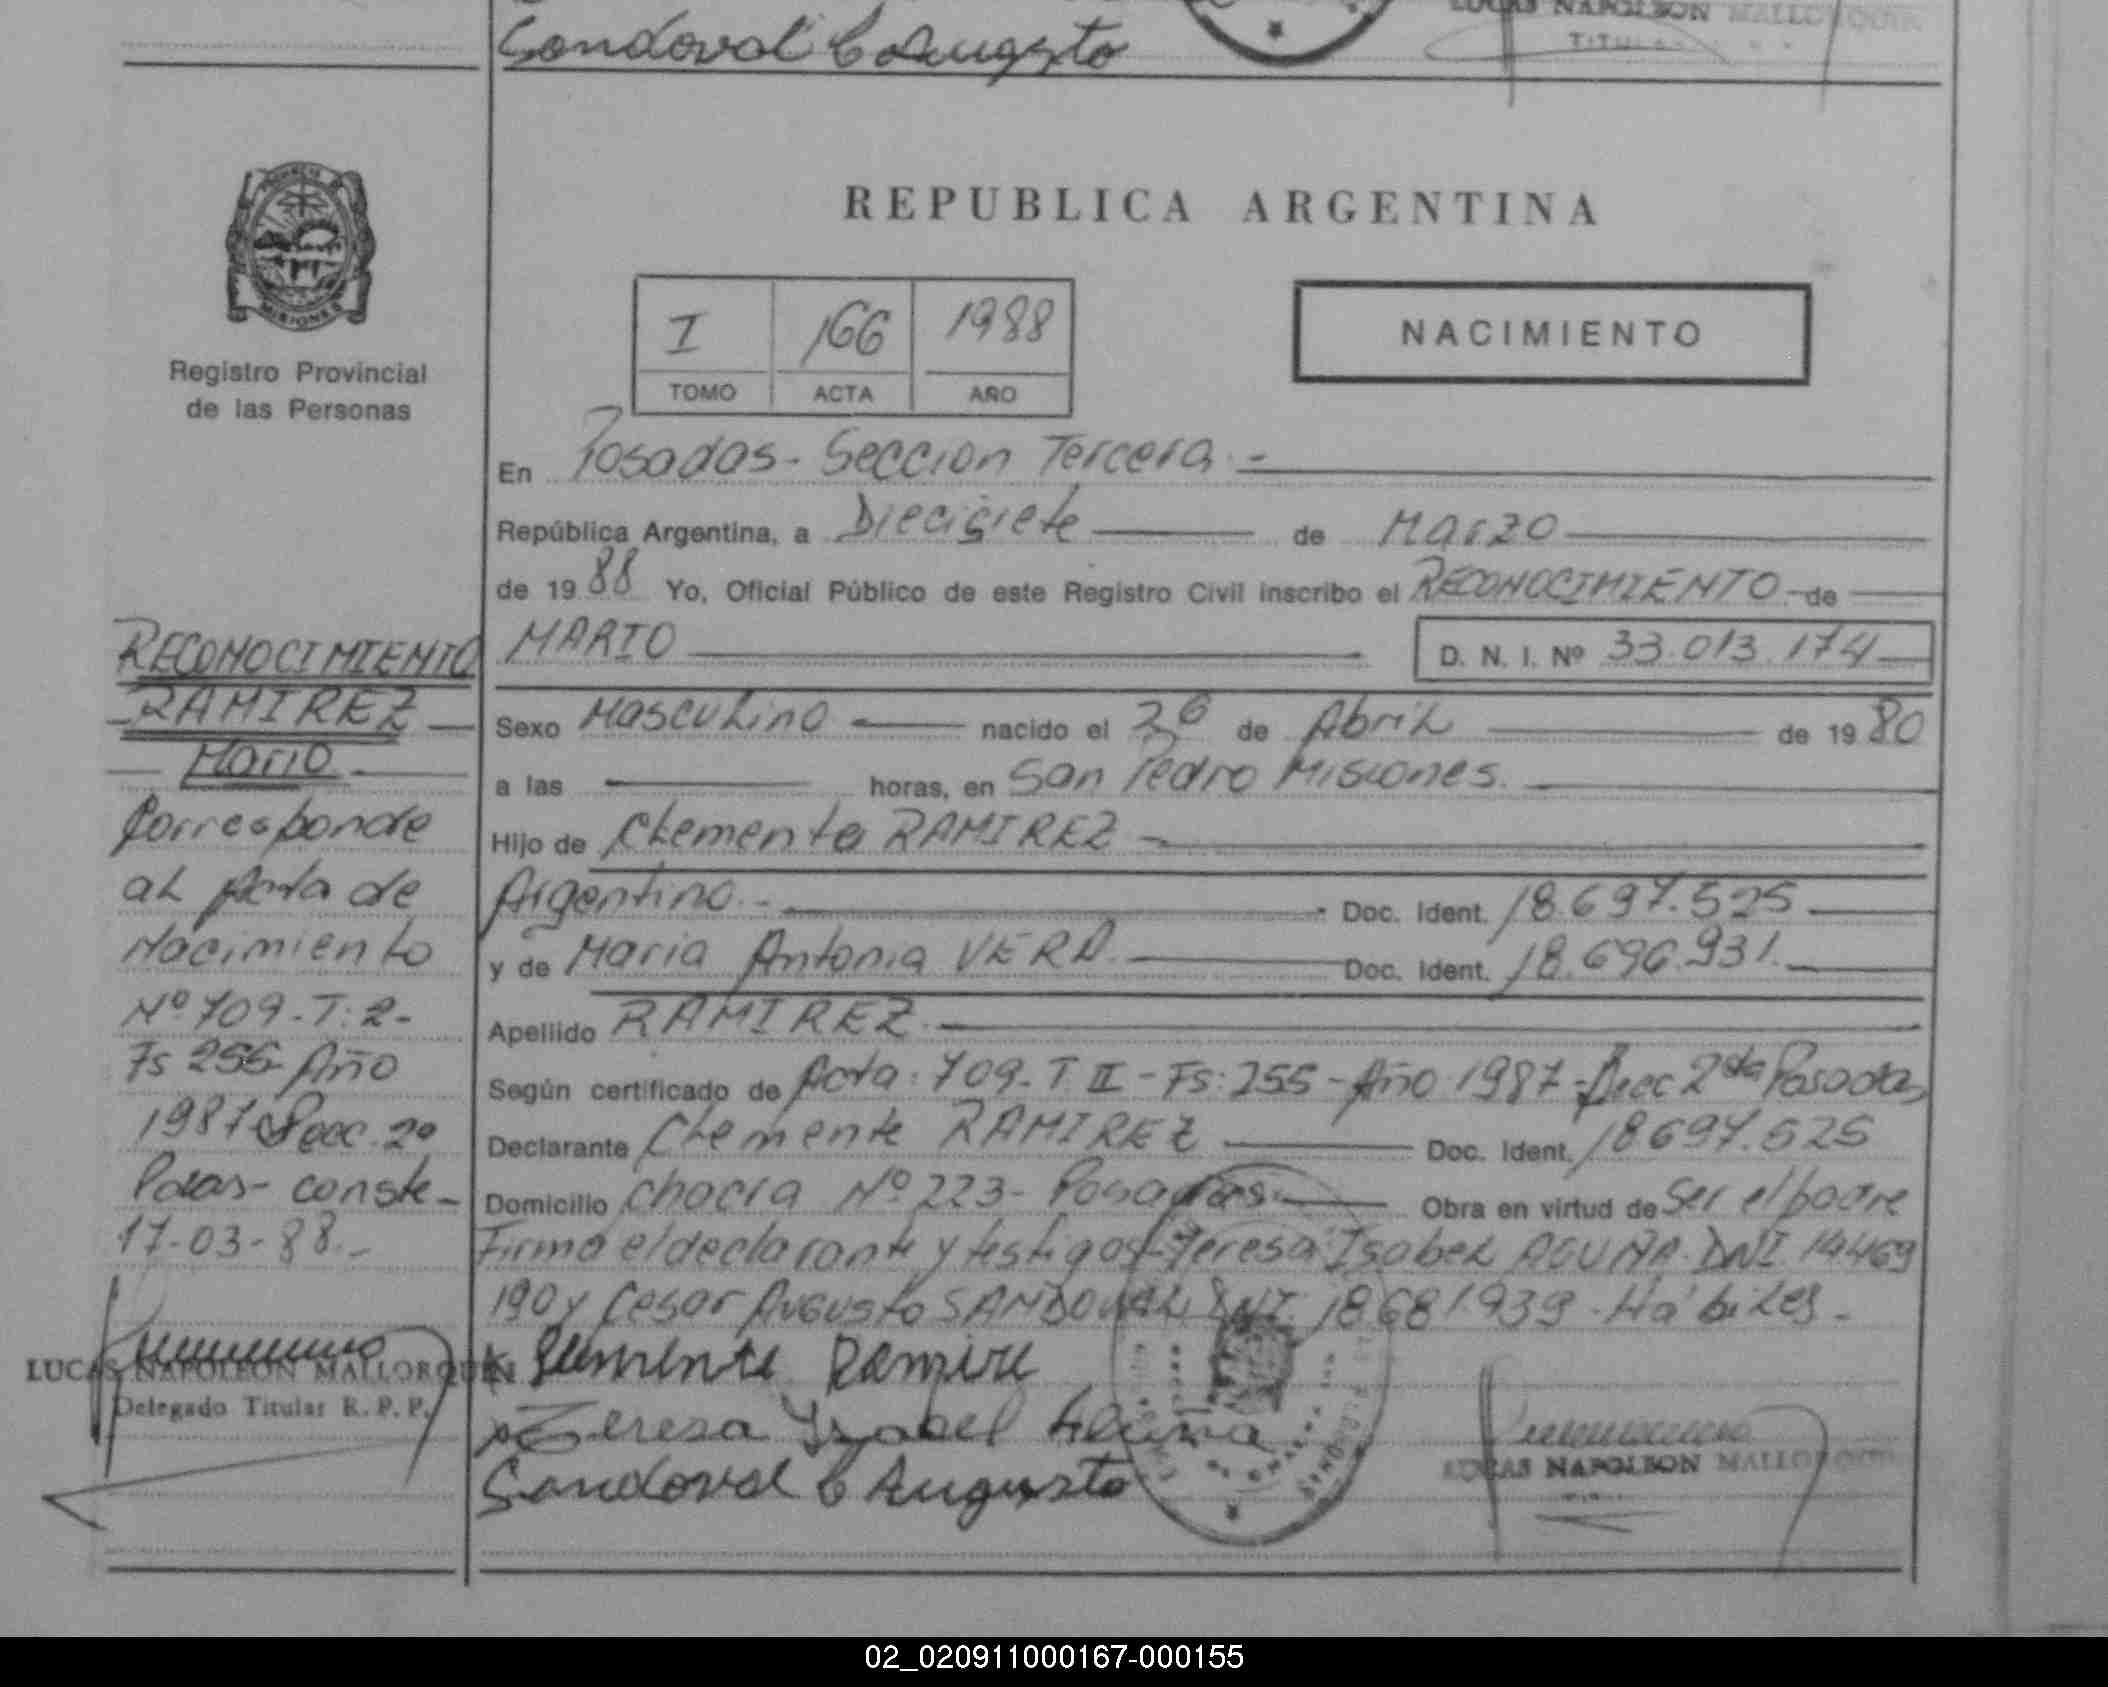 Sandoval C Augusto
LUCAS NAPOLEON MALLORQUIN
TITU
Registro Provincial
de las Personas
RECONOCIMIENTO
RAMIREZ
Mario
Corresponde
al Acta de
Nacimiento
Nº 709-T:2-
Fs 255 Año
1987 Secc. 2º
Pdas- conste-
17-03-88.-
LUCAS NAPOLEON MALLORQUIN
Delegado Titular R. P. P.
REPUBLICA ARGENTINA
I 166 1988
TOMO ACTA AÑO
NACIMIENTO
En Posadas - Seccion Tercera.-
República Argentina, a Diecisiete de Marzo
de 19 88 Yo, Oficial Público de este Registro Civil inscribo el RECONOCIMIENTO de
MARIO D. N. I. Nº 33.013.174
Sexo Masculino nacido el 26 de Abril de 19 80
a las horas, en San Pedro Misiones.
Hijo de Clemente RAMIREZ
Argentino.- Doc. Ident. 18.697.525
y de Maria Antonia VERA Doc. Ident. 18.696.931.
Apellido RAMIREZ
Según certificado de Acta: 709-T II - Fs: 255 - Año 1987 - Secc 2da Posadas
Declarante Clemente RAMIREZ Doc. Ident. 18697.525
Domicilio chacra Nº 223- Posadas Obra en virtud de ser el padre
Firma el declarante y testigos Teresa Isabel ACUÑA DNI 14469
190 y Cesar Augusto SANDOVAL DNI 18681939 - Hábiles -
Clemente Ramire
Teresa Ysabel Acuña
Sandoval C Augusto
LUCAS NAPOLEON MALLORQUIN
02_020911000167-000155